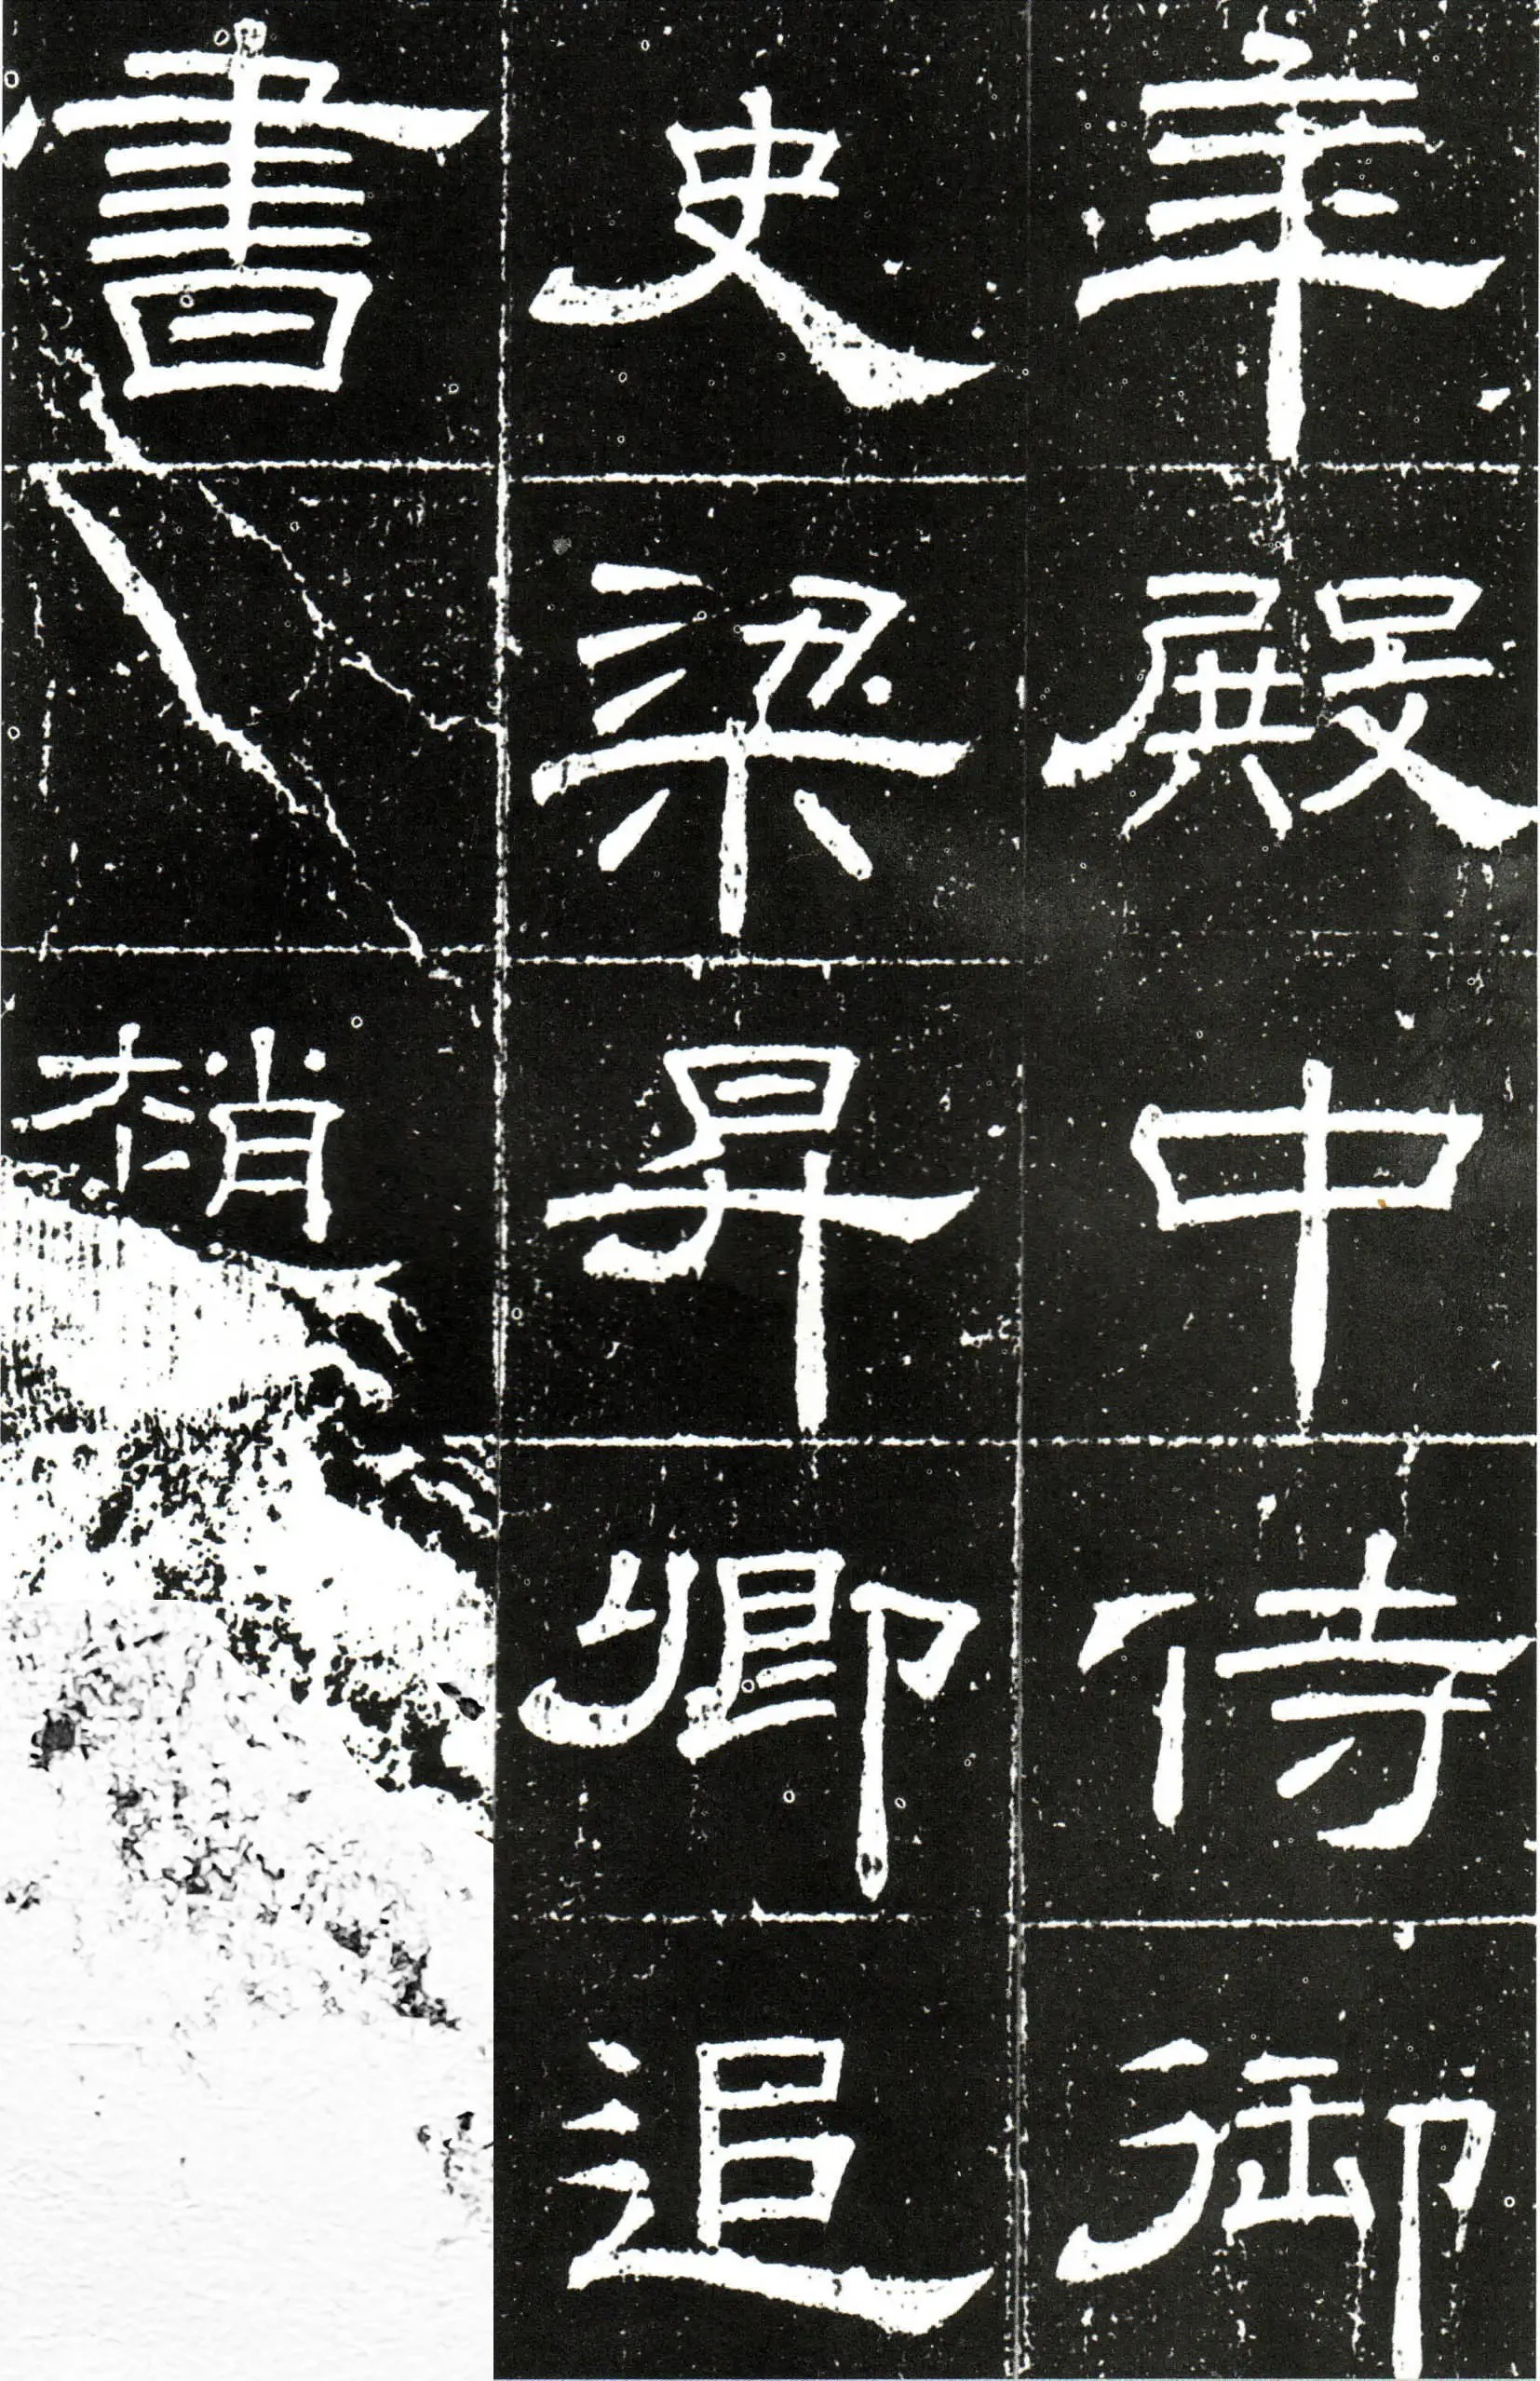 年殿中侍御
史梁昇卿追
書
梢